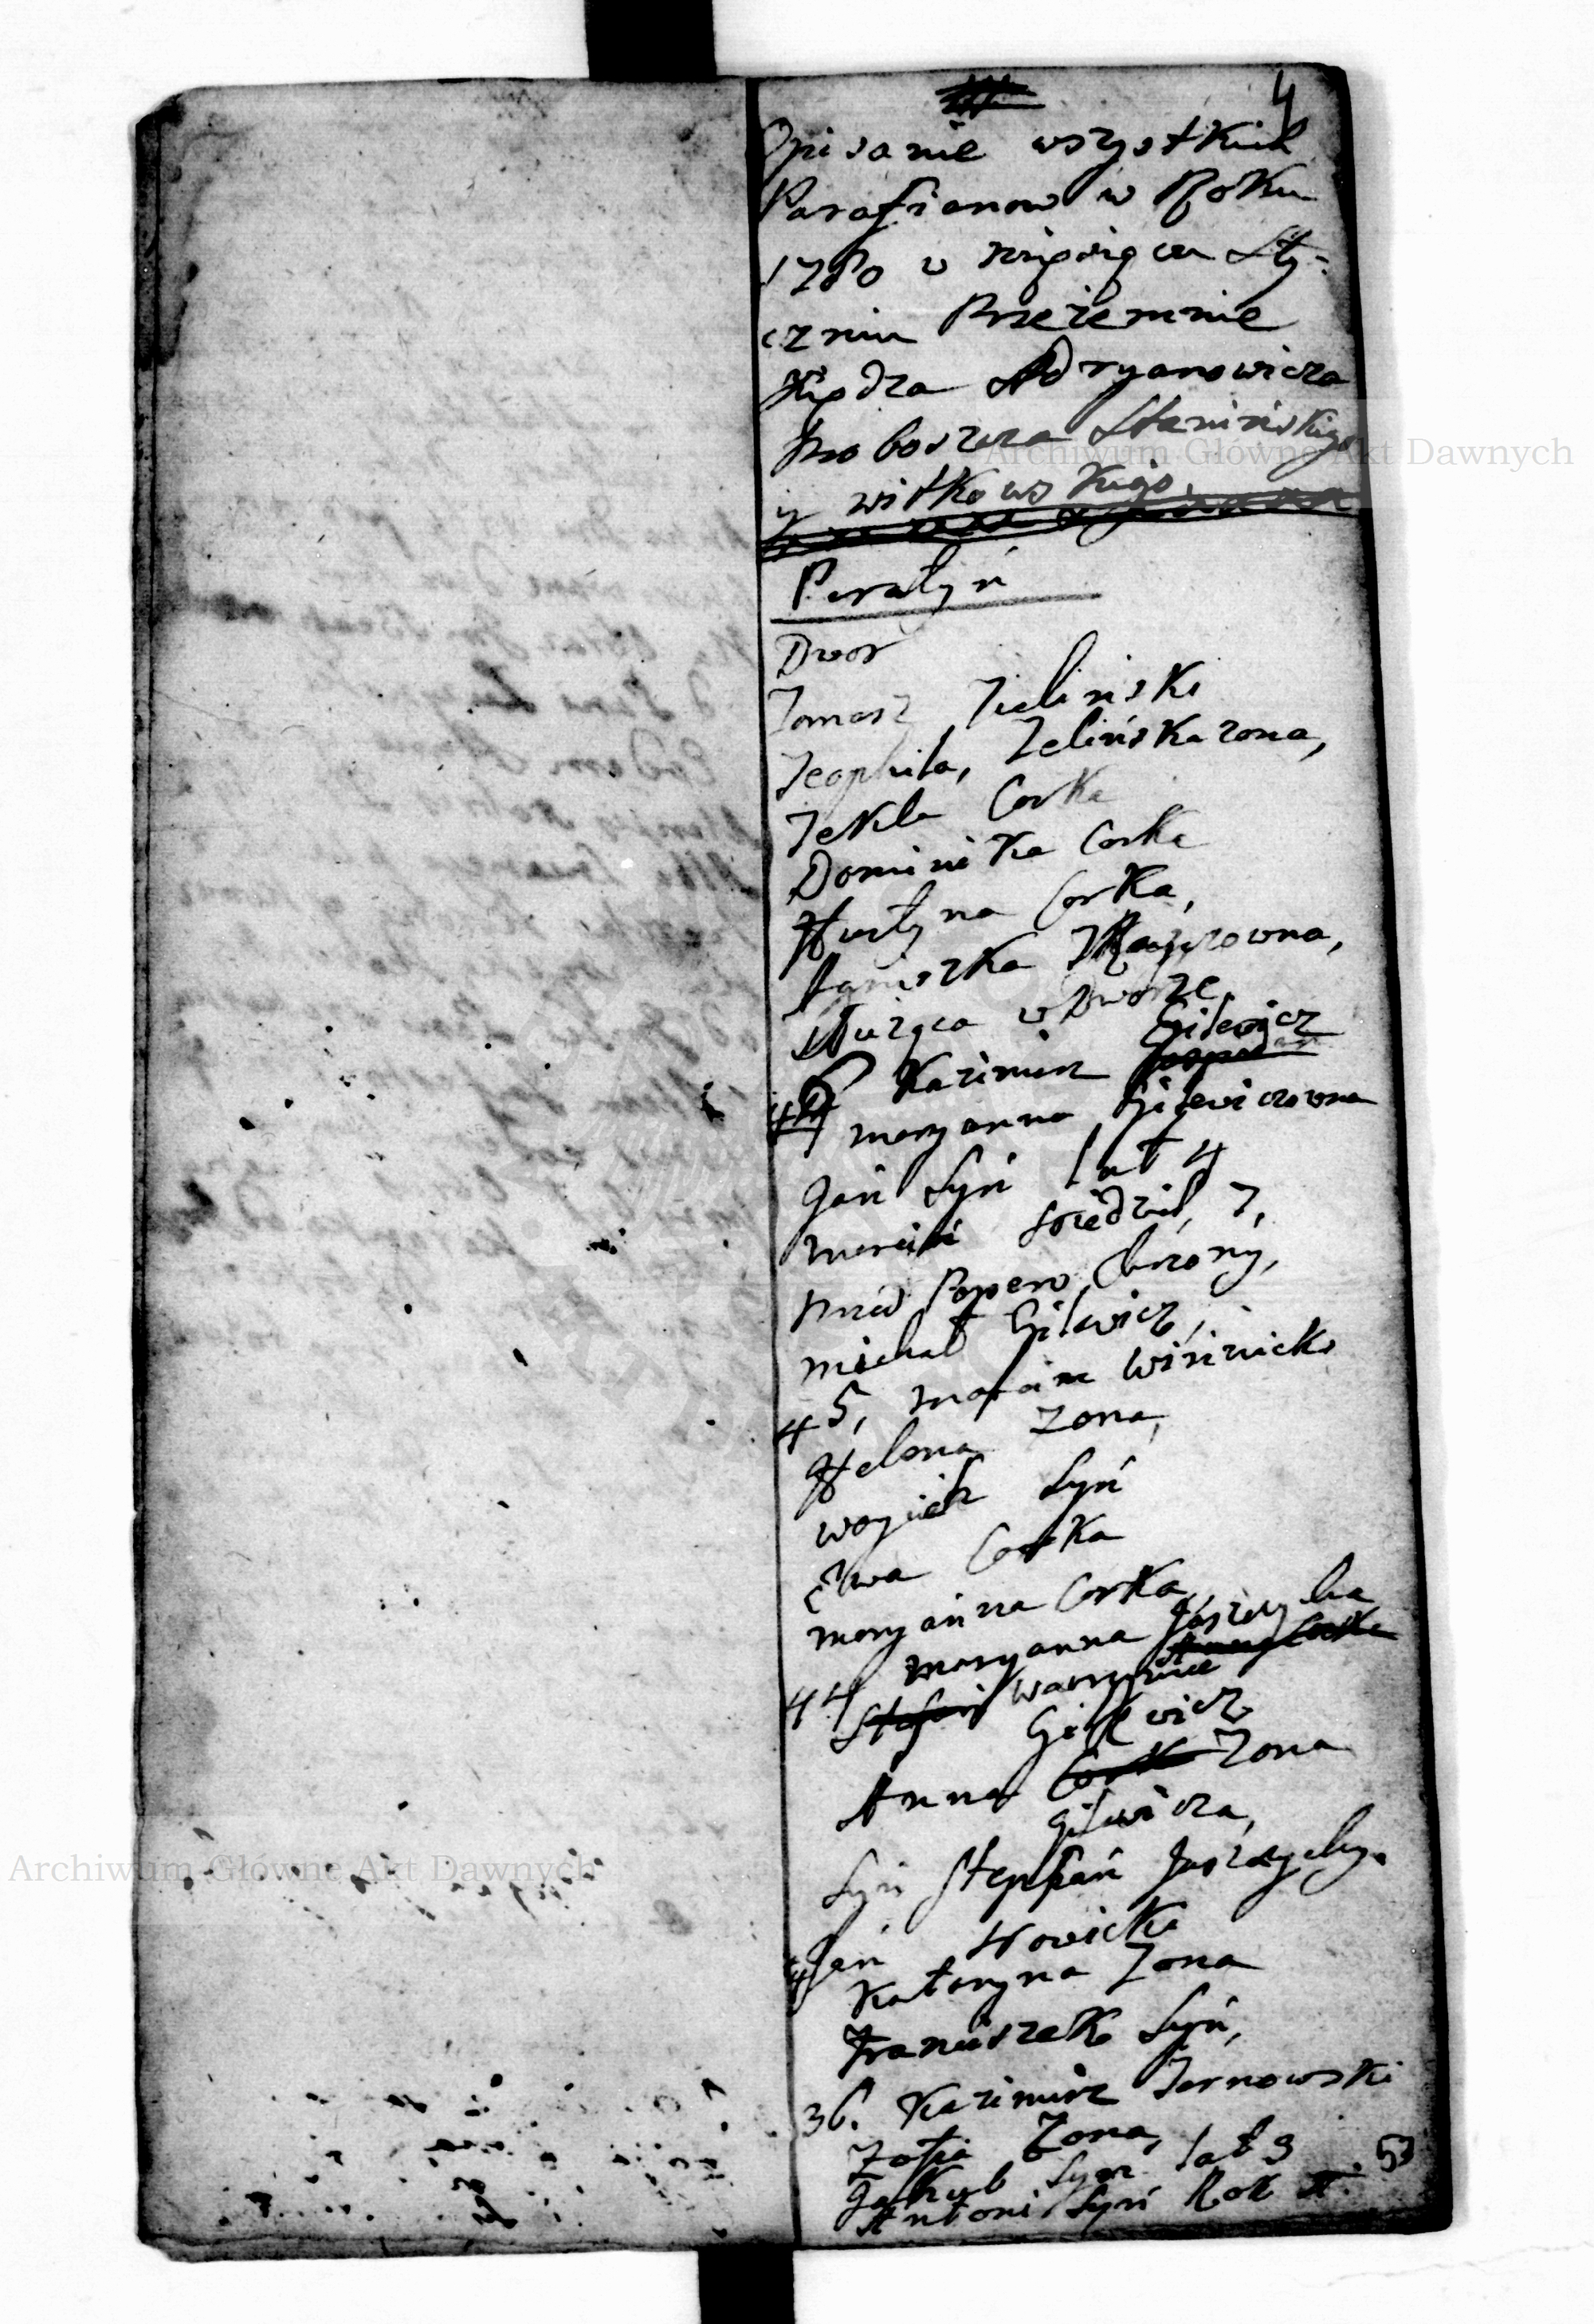 4
Opisanie wszystkich
Parafianow w Roku
1780 w miesiącu Sty-
czniu Przezemnie
Xiędza Adryanowicza
Proboszcza Stanińskiego
y witkowskiego.
Peratyń
Dwor
Tomasz Zieliński
Teophila, Zelińska zona,
Tekla Corka
Dominika Corka
Justyna Corka,
Agniszka
Służąca w Dworze,
Kazimirz Gilewicz
maryanna Gilewiczowna
Jan Syń lat 4
marcin sąedził, 7,
michał Gilewicz,
45, marcin Wiśnicki
Helena Zona,
woyciech Syń
Ewa Corka
maryanna Corka,
44 maryanna Jaszczyba
Wawrzyniec
Gilewicz
Anna Zona
Gilewicza,
Syń Stephań
Jań Nowicki
Kataryna Zona
Franciszek Syń,
36. Kazimirz Tarnowski
Zofia Zona,
Jakub Syń lat 9
Antoni Syń Rok
53
Archiwum Główne Akt Dawnych
Archiwum Główne Akt Dawnych